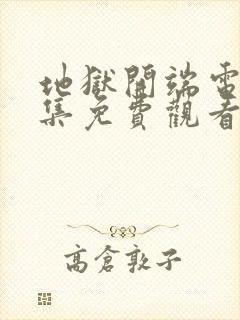 地獄開端電
集免費觀看
高倉敦子